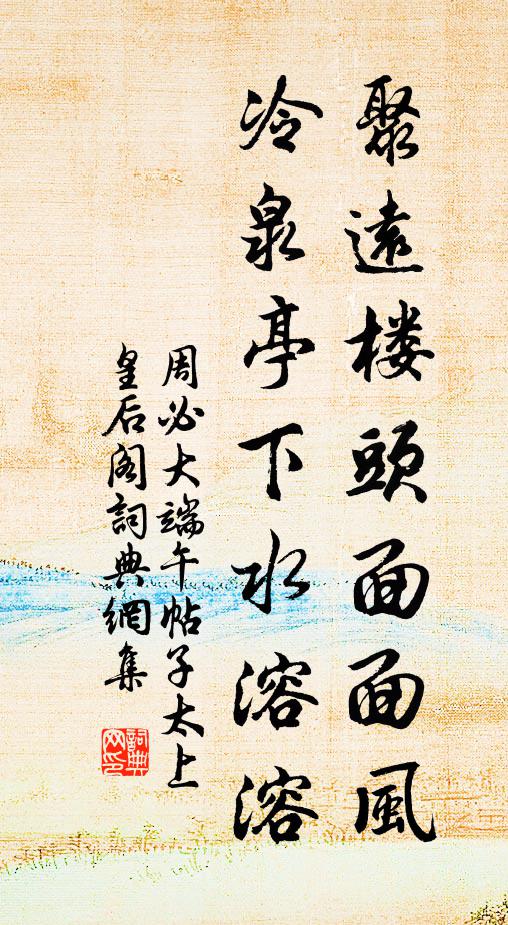 聚遠楼頭面面風
冷泉亭下水溶溶
周必大端午帖子太上
皇后阁詞典網集
詞典
网印